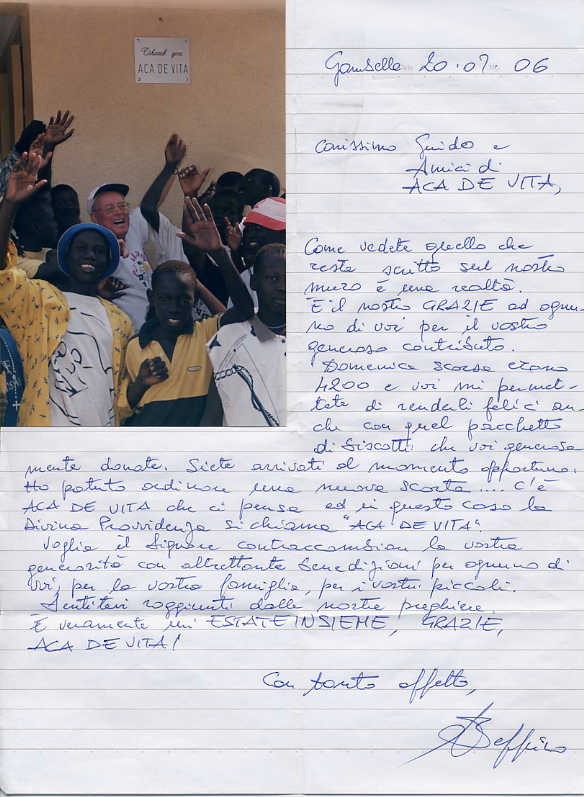 Thank you
ACA DE VITA
20.07.06
Carissimo Guido e
Amici di
ACA DE VITA,
Come vedete quello che
resta scritto sul nostro
muro è una realtà.
E il nostro GRAZIE ad ognu-
no di voi per il vostro
generoso contributo.
Domenica scorsa erano
4200 e voi mi permet-
tete di renderli felici an
che con quel pacchetto
di biscotti che voi generosa
mente donate. Siete arrivati al momento opportuno.
Ho potuto ordinare una nuova scorta .... c'è
ACA DE VITA che ci pensa ed in questo caso la
Divina Provvidenza si chiama "ACA DE VITA".
Voglia il Signore contraccambiare la vostra
generosità con altrettante Benedizioni per ognuno di
voi, per la vostra famiglia, per i vostri piccoli.
Sentitevi raggiunti dalle nostre preghiere.
È veramente un' ESTATE INSIEME, GRAZIE,
ACA DE VITA!
Con tanto affetto,
Beppino